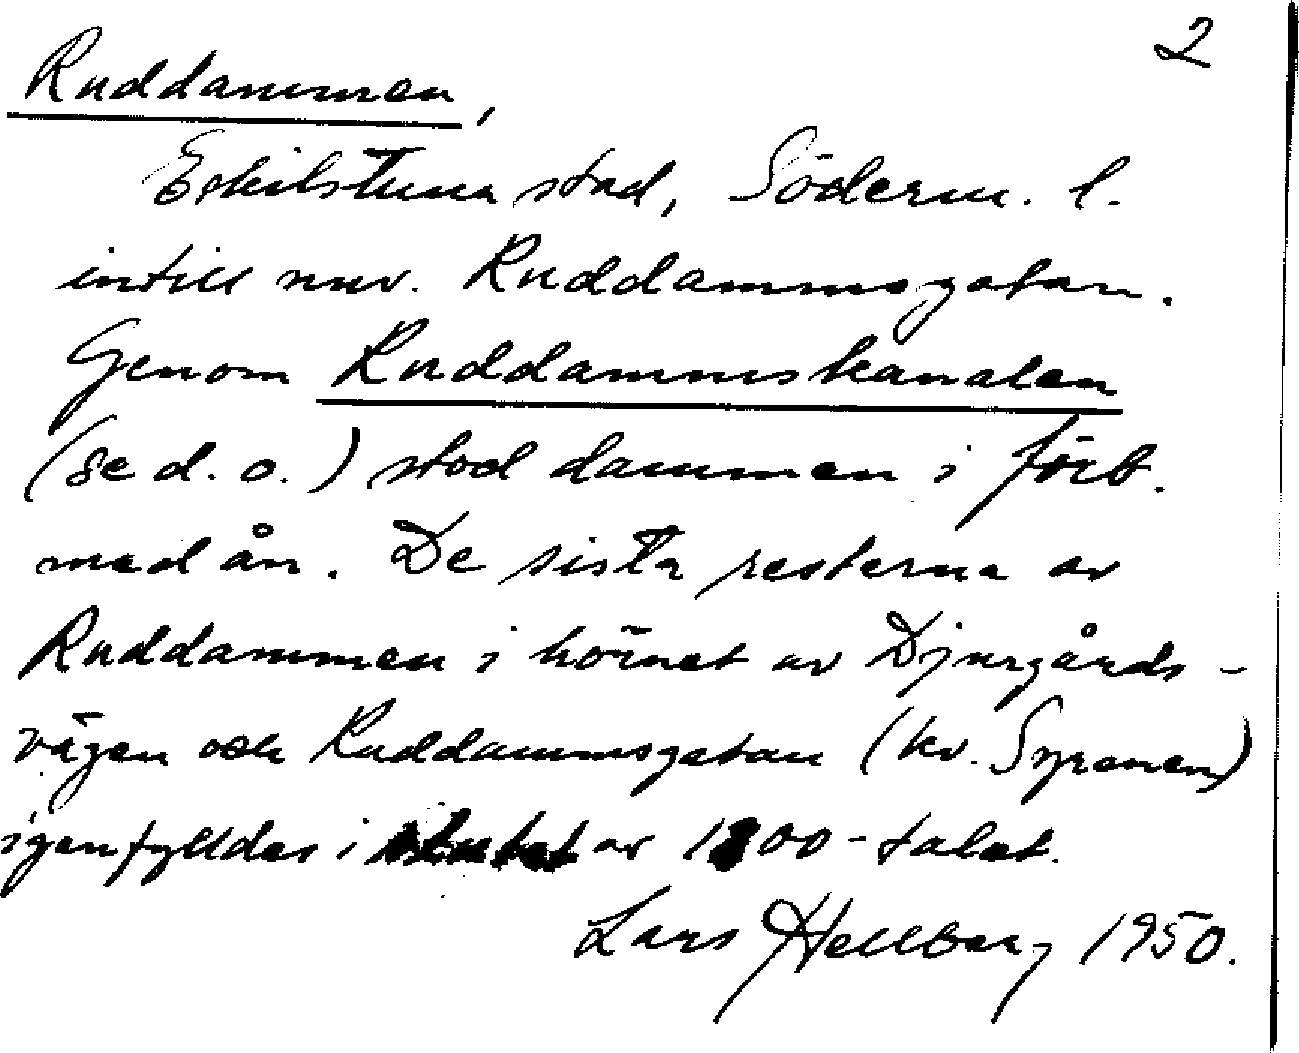 2
Ruddammen,
Eskilstuna stad, Söderm. l.
intill nuv. Ruddammsgatan.
Genom Ruddammskanalen
(se d. o.) stod dammen i förb.
med ån. De sista resterna av
Ruddammen i hörnet av Djurgårds-
vägen och Ruddammsgatan (kv. Syrenen)
igenfylldes i slutet av 1800-talet.
Lars Hellberg 1950.